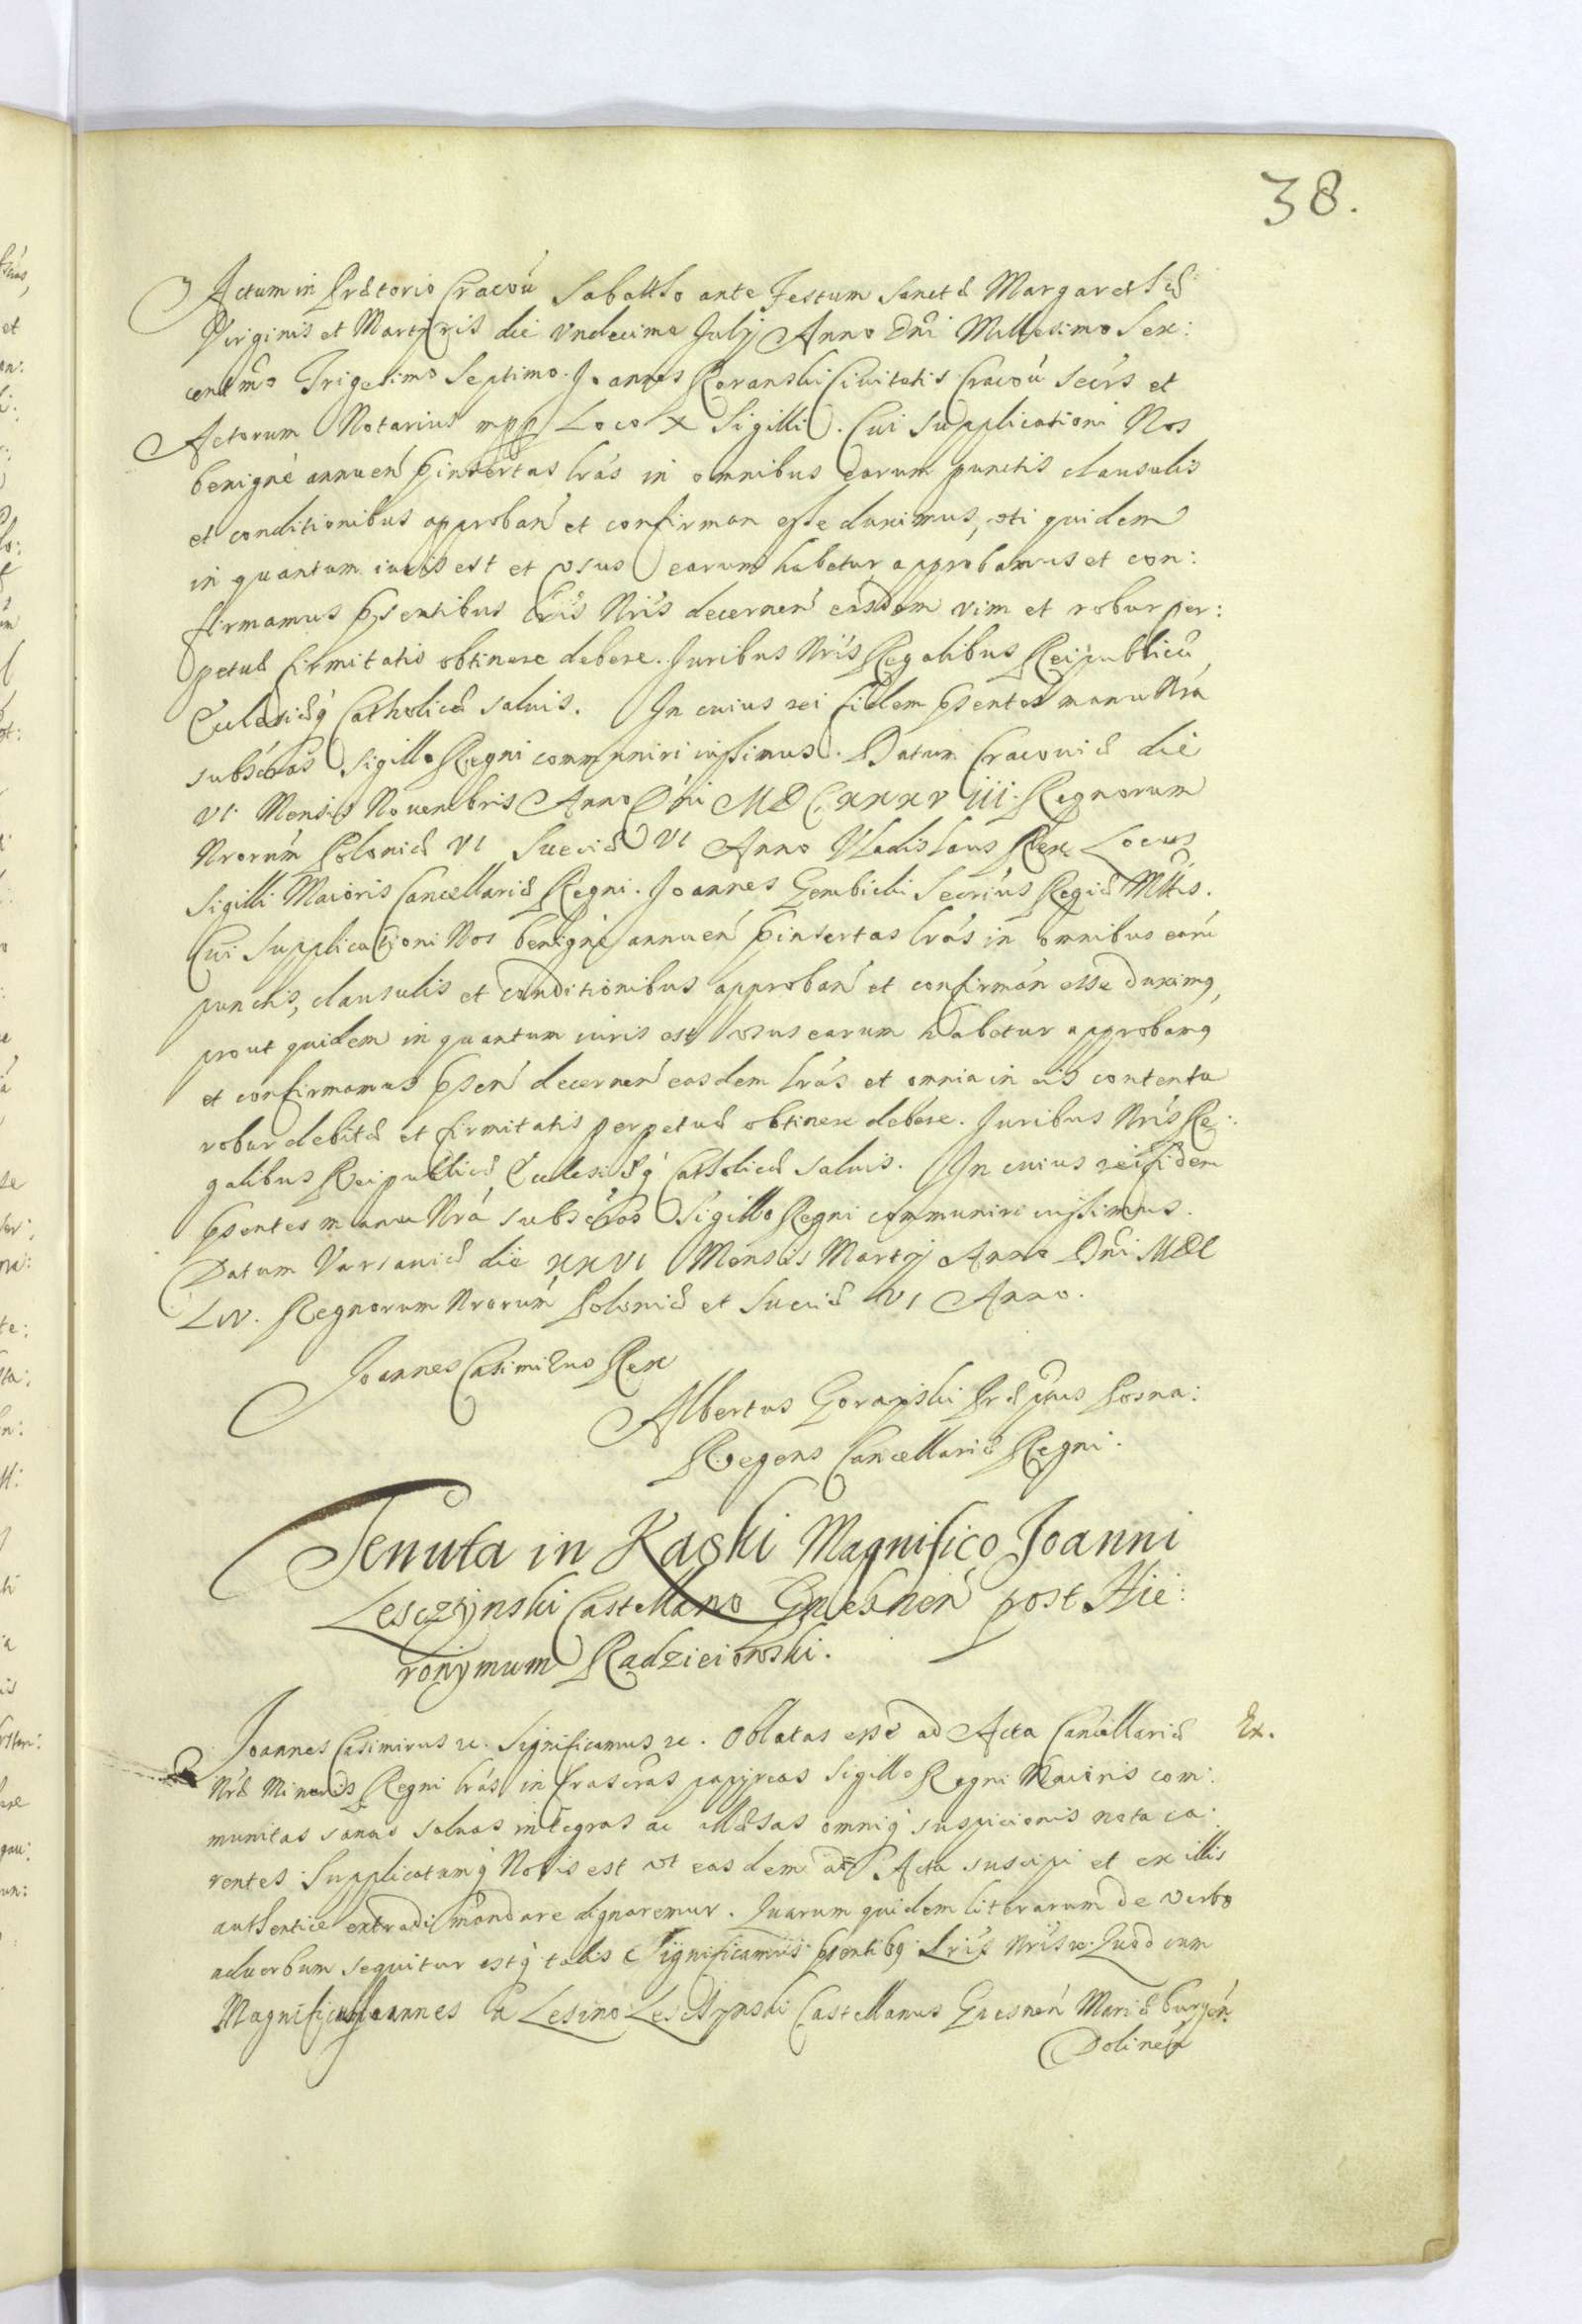 38.
Actum in Prætorio Cracou Sabattho ante Festum Sanctæ Margarethæ
Virginis et Martyris die Vndecima Julij Anno Dni Millesimo Sex:
centmo Trigesimo Septimo. Joannes Civitatis Cracou Secrs et
Actorum Notarius mpp Loco X Sigilli. Cui Supplicationi Nos
benigne annuen pinsertas lras in omnibus earum punctis clausulis
et conditionibus approban et confirman esse duximus, uti quidem
in quantum iuris est et vsus earum habetur approbamus et con:
firmamus Psentibus Lris Nris decernen easdem vim et robur per:
petuæ firmitatis obtinere debere. Juribus Nris Regalibus Reipublicæ
Ecclesiæq Catholicæ salvis. In cuius rei fidem Psentes manu Nra
subscras Sigillo Regni communiri iussimus. Datum Cracoviæ die
VI Mensis Nouembris Anno Dni MDCXXXVIII. Regnorum
Nrorum Poloniæ VI Sueciæ VI Anno Vladislaus Rex Locus
Sigilli Maioris Cancellariæ Regni. Joannes Gembicki Secrius Regiæ Mttis.
Cui Supplicationi Nos benigne annuen pinsertas lras in omnibus earu
punctis, clausulis et conditionibus approban et confirman esse duximq,
prout quidem in quantum iuris est vsus earum habetur approbamq
et confirmamus Psen decernen easdem lras et omnia in eis contenta
robur debitæ et firmitatis perpetuæ obtinere debere. Juribus Nris Re:
galibus Reipublicæ Ecclesiæq Catholicæ salvis. In cuius rei fidem
Psentes manu Nra subscras Sigillo Regni communiri iussimus.
Datum Varsaviæ die XXVI Mensis Martij Anno Dni MDC
LIV. Regnorum Nrorum Poloniæ et Sueciæ VI Anno.
Joannes Casimirus Rex
Albertus Goraiski Præptus Posna:
Regens Cancellariæ Regni.
Tenuta in Kaski Magnifico Joanni
Lesczijnski Castellano Gnesnen post Hie:
ronijmum Radzieiowski.
Joannes Casimirus &c. Significamus &c. Oblatas esse ad Acta Cancellariæ Ex.
Nræ Minoris Regni lras infrascras papyreas Sigillo Regni Maioris com:
munitas sanas salvas integras ac illæsas omniq suspicionis nota ca:
rentes Supplicatumq Nobis est vt easdem ad Acta suscipi et ex illis
authentice extradi mandare dignaremur. Quarum quidem litterarum de verbo
ad verbum sequitur estq talis Significamus Psentibq Lris Nris &c. Quod cum
Magnificus Joannes a Lesno Lesczynski Castellanus Gnesnen Mariæburgen
Dolinen